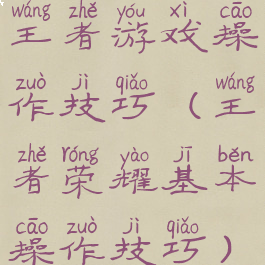 wáng zhě yóu xì cāo
王者游戏操
zuò jì qiǎo wáng
作技巧（王
zhě róng yào jī běn
者荣耀基本
cāo zuò jì qiǎo
操作技巧）